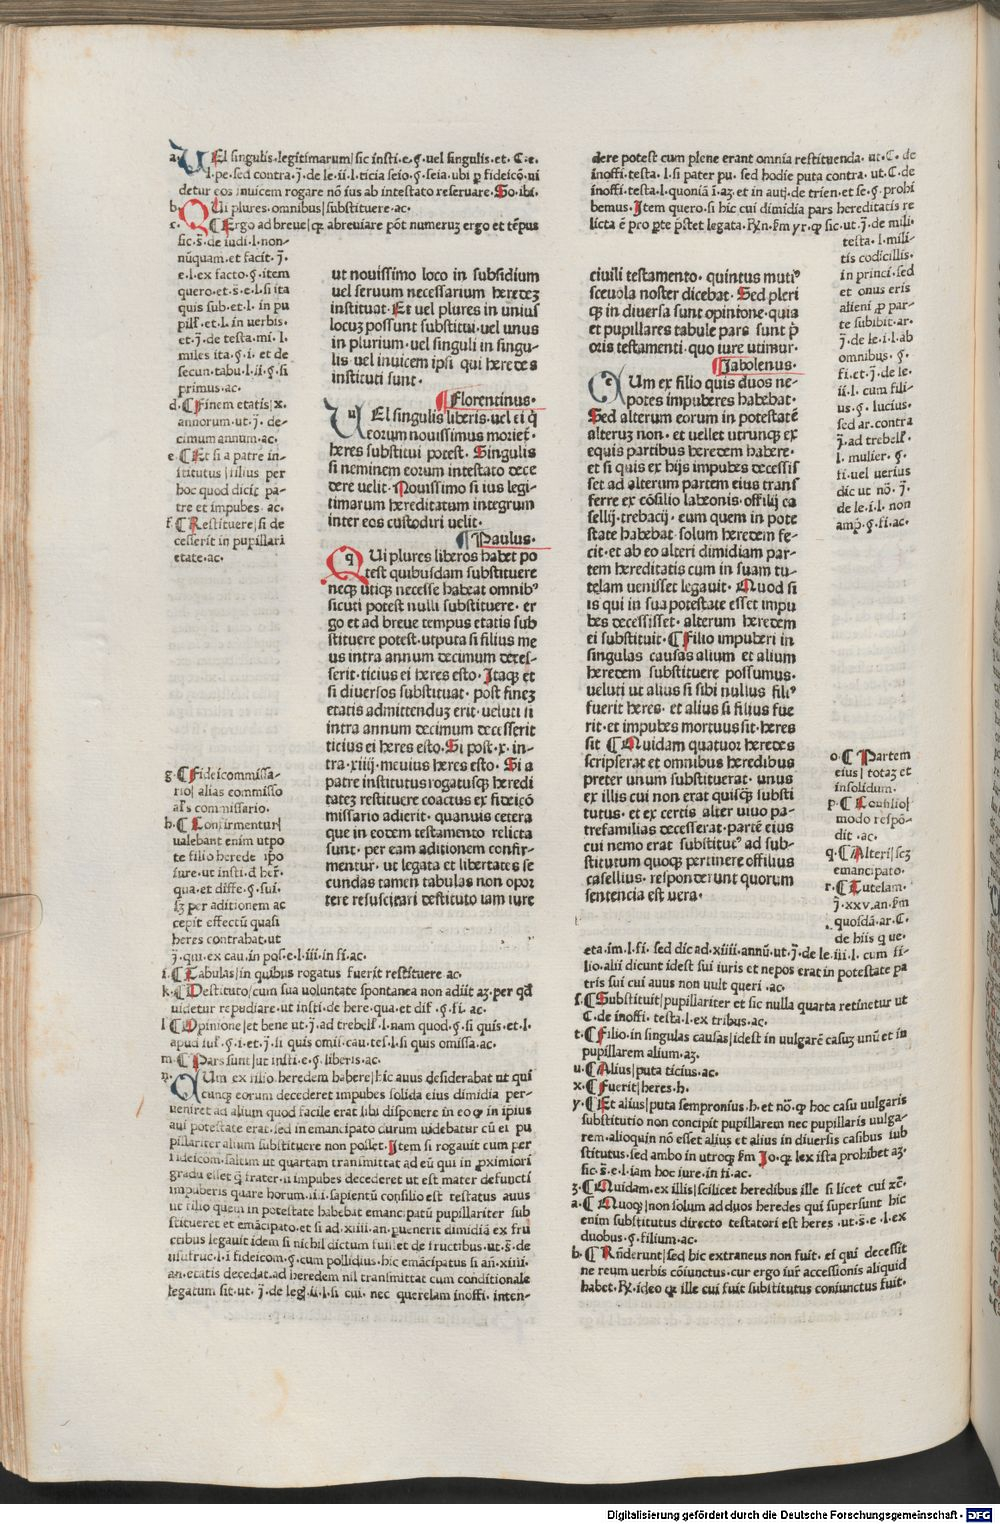 a. VEl singulis.legitimarum/sic insti.e.§.uel singulis.et.C.e.
l.pe.sed contra.j.de le.ii.l.ticia seio.§.seia.ubi ꝑ fideicō.ui
detur eos inuicem rogare nō ius ab intestato reseruare.So.ibi.
b. QUi plures.omnibus/substituere.ac.
c. ¶Ergo ad breue/cꝫ abreuiare pōt numeruꝫ ergo et tēpus
sic.s̄.de iudi.l.non-
nūquam.et facit.j.
e.l.ex facto.§.item
quero.et.s̄.e.l.si ita
quis sub.et.l.in pu
et.l.in uerbis.
et.j.de testa.mi.l.
miles ita.§.i.et de
secun.tabu.l.ii.§.si
primus.ac.
d.¶Finem etatis/x.
annorum.ut.j.de-
cimum annum.ac.
e ¶Et si a patre in-
stitutus/filius per
hoc quod dicit pa-
tre et impubes.ac.
f ¶Restituere/si de
cesserit in pupillari
etate.ac.
g.¶Fideicommissa-
rio/alias commisso
commissario.
h.¶Confirmentur/
ualebant enim utpo
te filio herede ipō
iure.ut insti.d her̄.
qua.et diffe.§.sui.
sꝫ per aditionem ac
cepit effectū quasi
heres contrabat.ut
j.qui.ex cau.in pos.e.l.iii.in fi.ac.
i.¶Tabulas/in quibus rogatus fuerit restituere ac.
k.¶Destituto/cum sua uoluntate spontanea non adiit aꝫ.per qd̄
uidetur repudiare.ut insti.de here.qua.et dif.§.fi.ac.
l ¶Opinione/et bene ut.j.ad trebelł.l.nam quod.§.si quis.et.l.
apud iuł.§.i.et.j.si quis omii.cau.tes.l.si quis omissa.ac.
m.¶Pars sunt/ut insti.e.§.liberis.ac.
n. QUm ex filio.heredem habere/hic auus desiderabat ut qui
cunqꝫ eorum decederet impubes solida eius dimidia per-
ueniret ad alium quod facile erat sibi disponere in eo ꝙ in ipius
aui potestate erat.sed in emancipato durum uidebatur cū ei pu
pillariter alium substituere non posset.Item si rogauit cum per
fideicom.saltim ut quartam transmittat ad eū qui in ꝓximiori
gradu esset ꝙ frater.ii impubes decederet ut est mater defuncti
impuberis quare horum.iii.sapientū consilio est testatus auus
ut filio quem in potestate habebat emancipatū pupillariter sub
stitueret et emācipato.et si ad.xiiii.an.puenerit dimidiā ex fru
ctibus legauit idem si nichil dictum fuisset de fructibus.ut.s̄.de
usufruc.l.i fideicom.§.cum pollidius.hic emācipatus si añ.xiiii.
an.etatis decedat.ad heredem nil transmittat cum conditionale
legatum sit.ut.j.de leg.ii.l.si cui.nec querelam inoffi.inten-
ut nouissimo loco in subsidium
uel seruum necessarium heredeꝫ
instituat.Et uel plures in unius
locuꝫ possunt substitui.uel unus
in plurium.uel singuli in singu-
lis uel inuicem ipsi qui heredes
instituti sunt.
¶Florentinus.
VEl singulis liberis.uel ei q̄
eorum nouissimus moriet̄.
heres substitui potest.Singulis
si neminem eorum intestato dece
dere uelit.Nouissimo si ius legi-
timarum hereditatum integrum
inter eos custodiri uelit.
¶Paulus.
QUi plures liberos habet po
test quibusdam substituere
necꝫ utiqꝫ necesse habeat omnibꝰ
sicuti potest nulli substituere.er
go et ad breue tempus etatis sub
stituere potest.utputa si filius me
us intra annum decimum deces-
serit.ticius ei heres esto.Itaqꝫ et
si diuersos substituat.post fineꝫ
etatis admittenduꝫ erit.ueluti si
intra annum decimum decesserit
ticius ei heres esto.Si post.x.in-
tra.xiiij.meuius heres esto.Si a
patre institutus rogatusqꝫ heredi
tateꝫ restituere coactus ex fideicō
missario adierit.quanuis cetera
que in eodem testamento relicta
sunt.per eam aditionem confir-
mentur.ut legata et libertates se
cundas tamen tabulas non opor
tere resuscitari destituto iam iure
dere potest cum plene erant omnia restituenda.ut.C.de
inoffi.testa.l.si pater pu.sed hodie puta contra.ut.C.de
inoffi.testa.l.quoniā ī.aꝫ.et in autj.de trien.et se.§.prohi
bemus.Item quero.si hic cui dimidia pars hereditatis re
licta ē pro ꝑte p̄stet legata.ꝶn.fm yr.ꝙ sic.ut.j.de mili-
testa.l.mili-
tis codicillis.
in princi.sed
et onus eris
alieni ꝓ par-
te subibit.ar.
j.de le.i.l.ab
omnibus.§.
fi.et.j.de le.
ii.l.cum fili-
us.§.lucius.
sed ar.contra
j.ad trebelł.
l.mulier.§.
fi.uel uerius
dic ut nō.j.
de le.i.l.non
amp̄.§.fi.ac.
o.¶Partem
eius/totaꝫ et
insolidum.
p.¶Consilio/
modo respō-
dit.ac.
q.¶Alteri/scꝫ
emancipato.
r.¶Tutelam.
j.xxv.an.fm
quosdā.ar.C.
de hiis q ue.
eta.im.l.fi.sed dic ad.xiiii.annū.ut.j.de le.iii.l.cum fi-
lio.alii dicunt idest sui iuris et nepos erat in potestate pa
tris sui cui auus non uult queri.ac.
s.¶Substituit/pupillariter et sic nulla quarta retinetur ut
C.de inoffi.testa.l.ex tribus.ac.
t.¶Filio.in singulas causas/idest in uulgarē casuꝫ unū et in
pupillarem alium.aꝫ.
u.¶Alius/puta ticius.ac.
x.¶Fuerit/heres.h.
y.¶Et alius/puta sempronius.h.et nō.ꝙ hoc casu uulgaris
substitutio non concipit pupillarem nec pupillaris uulga-
rem.alioquin nō esset alius et alius in diuersis casibus sub
stitutus.sed ambo in utroqꝫ fm Jo.ꝙ lex ista prohibet aꝫ.
sic.s̄.e.l.iam hoc iure.in fi.ac.
ꝫ.¶Quidam.ex illis/scilicet heredibus ille si licet cui
a.¶Quoqꝫ/non solum ad duos heredes qui supersunt hic
enim substitutus directo testatori est heres.ut.s̄.e.l.ex
duobus.§.filium.ac.
b.¶Rn̄derunt/sed hic extraneus non fuit.ei qui decessit
ne reum uerbis cōiunctus.cur ergo iur̄ accessionis aliquid
habet.ꝶ.ideo ꝙ ille cui fuit substitutus coniunctus fuit.
ciuili testamento.quintus mutiꝰ
sceuola noster dicebat.Sed pleri
qꝫ in diuersa sunt opinione.quia
et pupillares tabule pars sunt p̄
oris testamenti.quo iure utimur.
¶Jabolenus.
CUm ex filio quis duos ne-
potes impuberes habebat.
Sed alterum eorum in potestatē
alteruꝫ non.et uellet utrunqꝫ ex
equis partibus heredem habere.
et si quis ex hijs impubes decessis
set ad alterum partem eius trans
ferre ex cōsilio labeonis.offilij ca
sellij.trebacij.eum quem in pote
state habebat solum heredem fe-
cit.et ab eo alteri dimidiam par-
tem hereditatis cum in suam tu-
telam uenisset legauit.Quod si
is qui in sua potestate esset impu
bes decessisset.alterum heredem
ei substituit.¶Filio impuberi in
singulas causas alium et alium
heredem substituere possumus.
ueluti ut alius si sibi nullus filiꝰ
fuerit heres.et alius si filius fue
rit.et impubes mortuus sit.heres
sit ¶Quidam quatuor heredes
scripserat et omnibus heredibus
preter unum substituerat.unus
ex illis cui non erat quisqꝫ substi
tutus.et ex certis alter uiuo pa-
trefamilias decesserat.partē eius
cui nemo erat substitutꝰ ad sub-
stitutum quoqꝫ pertinere offilius
casellius.responderunt quorum
sententia est uera.
Digitalisierung gefördert durch die Deutsche Forschungsgemeinschaft - DFG